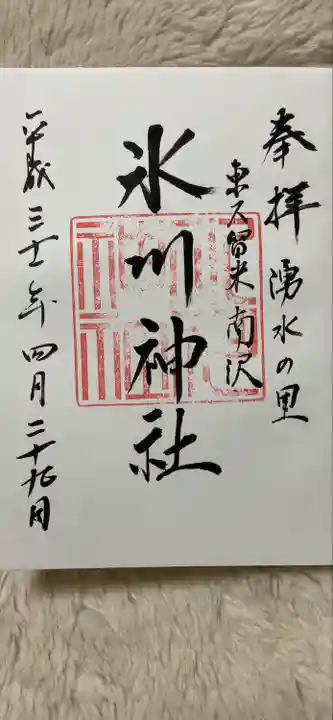 奉拝 湧水の里
東久留米南沢
氷川神社
平成三十一年四月二十九日